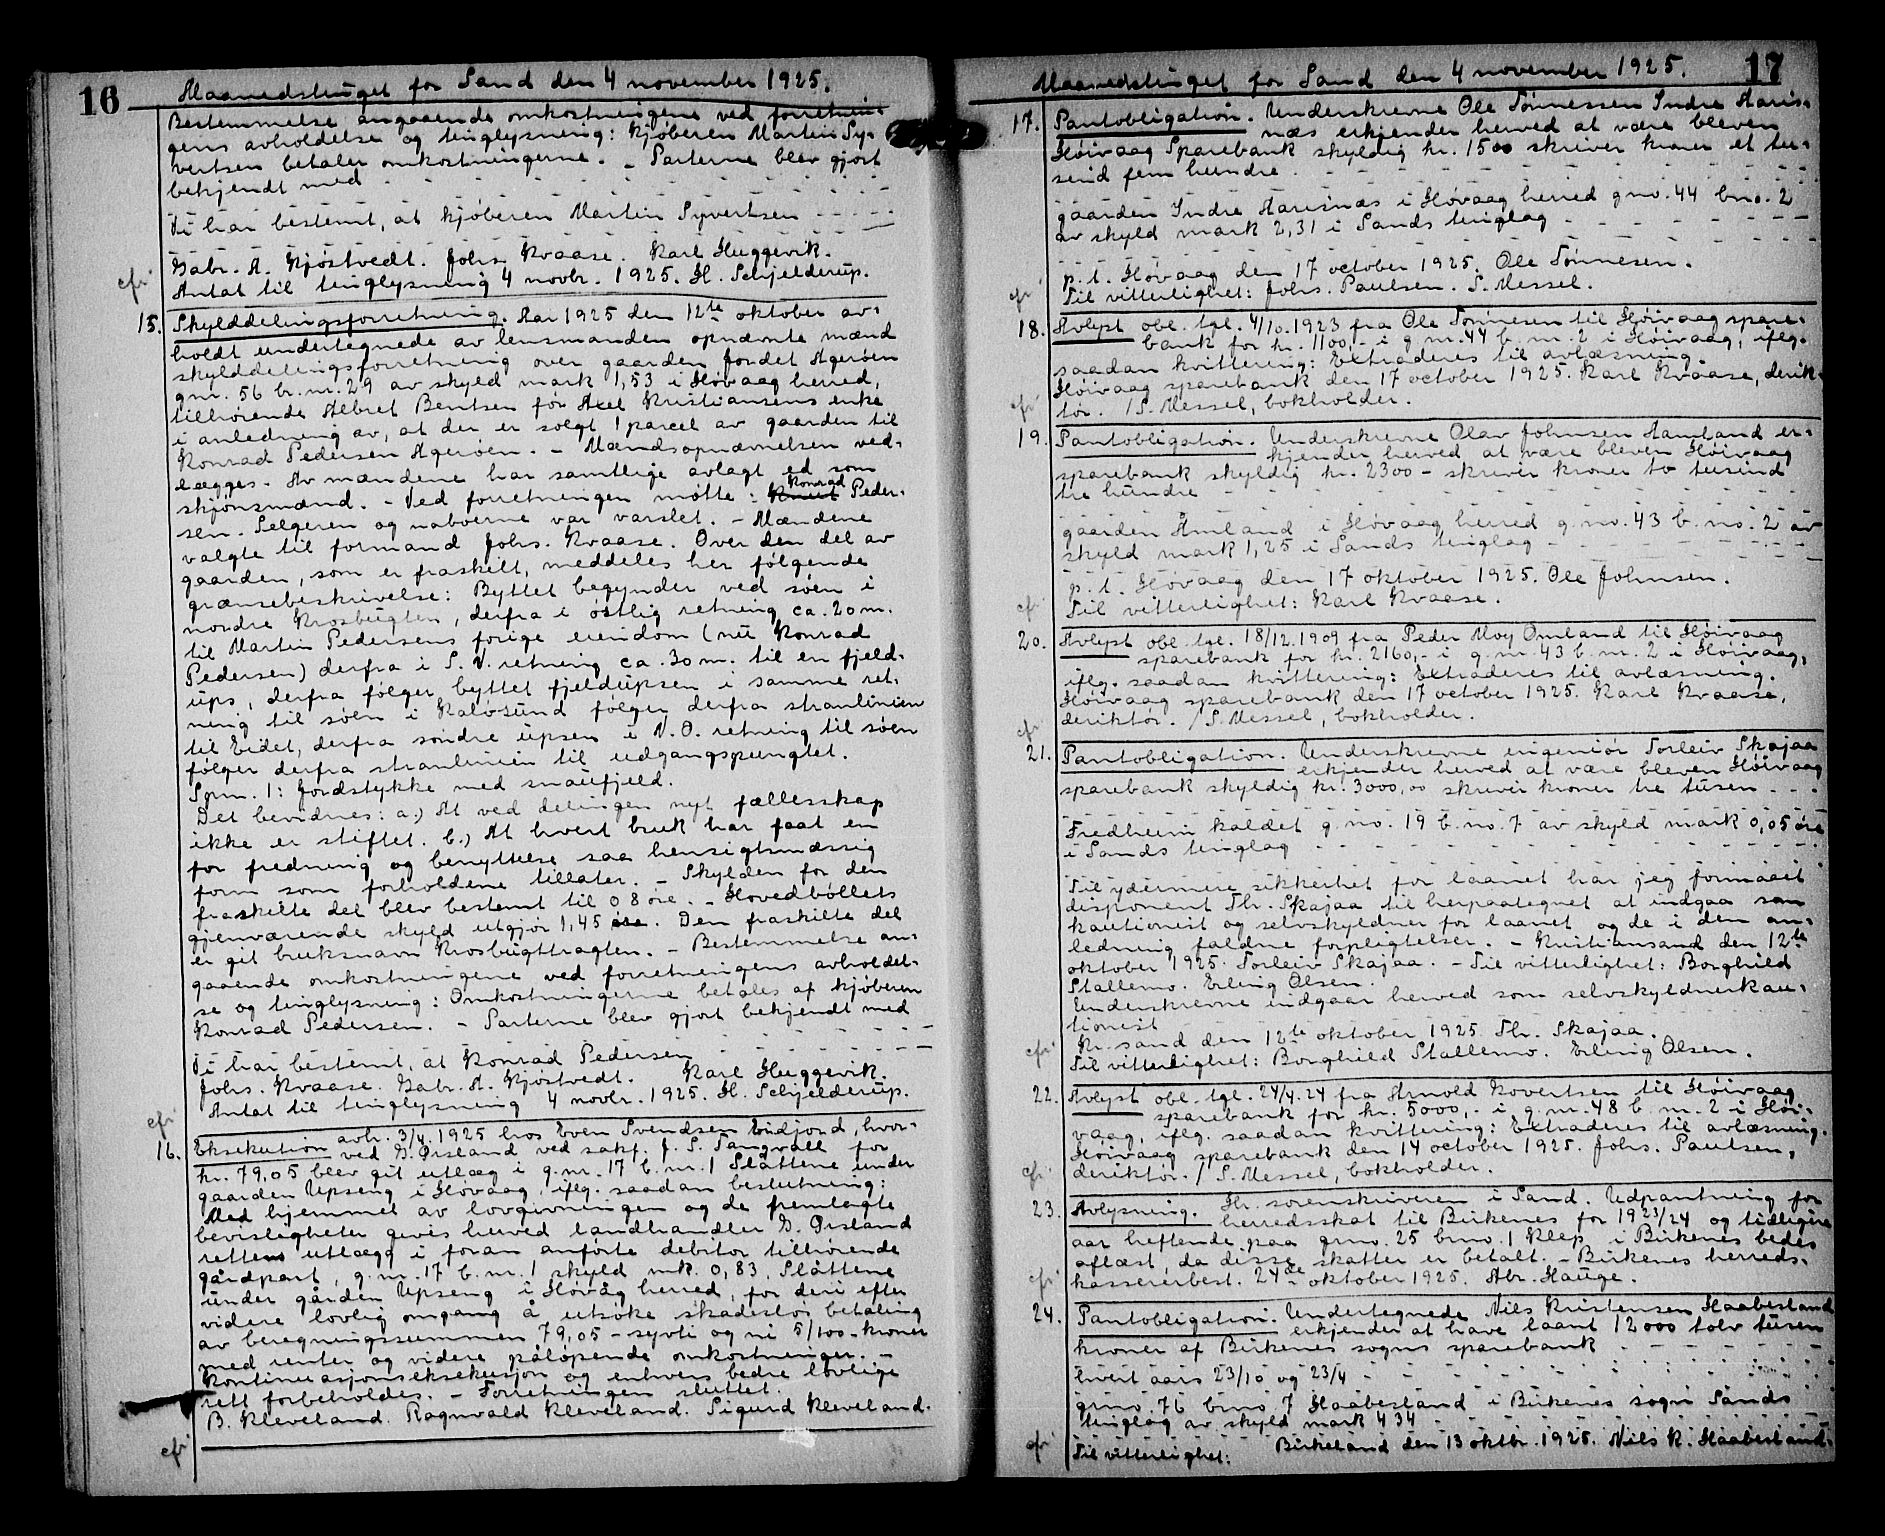 16
Maanedstinget for Sand den 4 november 1925.
Bestemmelse angaaende omkostningene ved forretnin-
gens avholdelse og tinglysning: Kjøberen Martin Sy-
vertsen betaler omkostningerne. – Parterne blev gjort
bekjendt med - - -
Vi har bestemt, at kjøberen Martin Syvertsen - - -
Gabr. A. Kjøstvedt. Johs. Kvaase. Karl Huggevik.
cfr Antat til tinglysning 4 novbr. 1925. H. Schjelderup.
15. Skylddelingsforretning. Aar 1925 den 12te oktober av-
holdt undertegnede av lensmanden opnævnte mænd
skylddelingsforretning over gaarden Jordet Agerøen
gnr. 56 b.nr. 29 av skyld mark 1,53 i Høvaag herred,
tilhørende Albret Bentsen for Axel Kristiansens enke
i anledning av, at der er solgt 1 parcel av gaarden til
Konrad Pedersen Agerøen. – Mændsopnævnelsen ved-
lægges. Av mændene har samtlige avlagt ed som
skjønsmænd. – Ved forretningen møtte: Konrad Peder-
sen. Selgeren og naboerne var varslet. – Mændene
valgte til formand Johs. Kvaase. Over den del av
gaarden, som er fraskilt, meddeles her følgende
grænsebeskrivelse: Byttet begynder ved søen i
nordre Krosbugten, derfra i østlig retning ca. 20 m.
til Martin Pedersens forige eiendom (nu Konrad
Pedersen) derfra i S.V. retning ca. 30 m. til en fjeld-
ups, derfra følger byttet fjeldupsen i samme ret-
ning til søen i Kalvsund følger derfra stranlinien
til Eidet, derfra søndre upsen i N.O. retning til søen
følger derfra stranlinien til udgangspungtet.
Spm. 1: Jordstykke med snaufjeld.
Det bevidnes: a.) At ved delingen nyt fællesskap
ikke er stiftet. b.) At hvert bruk har faat en
for fredning og benyttelse saa hensigtsmæssig
form som forholdene tillater. – Skylden for den
fraskilte del blev bestemt til 08 øre. – Hovedbøllets
gjenværende skyld utgjør 1,45 øre. Den fraskilte del
er git bruksnavn Krosbugttragten. – Bestemmelse an-
gaaende omkostningene ved forretningens avholdel-
se og tinglysning: Omkostningerne betales af kjøberen
Konrad Pedersen. – Parterne blev gjort bekjendt med
Vi har bestemt, at Konrad Pedersen - - -
Johs. Kvaase. Gabr. A. Kjøstvedt. Karl Huggevik.
cfr Antat til tinglysning 4 novbr. 1925. H. Schjelderup.
16. Eksekution avh. 3/4. 1925 hos Even Svendsen Eidjord, hvor-
ved G. Ørsland ved sakf. J. S. Tangvall for
kr. 79,05 blev git utlæg i g.nr. 17 b.nr. 1 Slåttene under
gaarden Upseng i Høvaag, iflg. saadan beslutning:
Med hjemmel av lovgivningen og de fremlagte
bevisligheter gives herved landhandler G. Ørsland
rettens utlægg i foran anførte debitor tilhørende
gårdpart, g.nr. 17 b.nr. 1 skyld mk. 0,83. Slåttene
under gården Upseng i Høvåg herred, for deri efter
videre lovlig omgang å utsøke skadesløs betaling
av beregningssummen 79,05 – sytti og ni 5/100 – kroner
med renter og videre påløpende omkostninger. –
Kontinuasjonseksekusjon og enhvers bedre lovlige
rett forbeholdes. – Forretningen sluttet.
B. Kleveland. Ragnvald Kleveland. Sigurd Kleveland.
cfr
17
Maanedstinget for Sand den 4 november 1925.
17. Pantobligation. Underskrevne Ole Tønnessen Indre Aaris-
næs erkjender herved at være bleven
Høivaag Sparebank skyldig kr. 1500 skriver kroner et tu-
send fem hundre. - - -
gaarden Indre Aarisnæs i Høvaag herred g.no. 44 b.no. 2
av skyld mark 2,31 i Sands tinglag - - -
p.t. Høvaag den 17 october 1925. Ole Tønnesen.
cfr Til vitterlighet: Johs. Paulsen. S. Messel.
18. Avlyst obl. tgl. 4/10. 1923 fra Ole Tønnesen til Høivaag spare-
bank for kr. 1100,- i g.nr. 44 b.nr. 2 i Høivaag, iflg.
saadan kvittering: Extraderes til avlæsning.
Høivaag sparebank den 17 october 1925. Karl Kvaase, derik-
cfr tør. /S. Messel, bokholder.
19. Pantobligation. Underskrevne Olav Johnsen Aamland er-
kjender herved at være bleven Høivaag
sparebank skyldig kr. 2300 – skriver kroner to tusind
tre hundre - - -
gaarden Åmland i Høvaag herred g.no. 43 b.no. 2 av
skyld mark 1,25 i Sands tinglag - - -
p.t. Høvaag den 17 oktober 1925. Ole Johnsen.
cfr Til vitterlighet: Karl Kvaase.
20. Avlyst obl. tgl. 18/12. 1909 fra Peder Moy Omland til Høivaag
sparebank for kr. 2160,- i g.nr. 43 b.nr. 2 i Høivaag,
iflg. saadan kvittering: Extraderes til avlæsning.
Høivaag sparebank den 17 october 1925. Karl Kvaase,
cfr deriktør. /S. Messel, bokholder.
21. Pantobligation. Underskrevne ingeniør Torleiv Skajaa
erkjender herved at være bleven Høivaag
sparebank skyldig kr. 3000,00 skriver kroner tre tusen - - -
Fredheim kaldet g.no. 19 b.no. 7 av skyld mark 0,05 øre
i Sands tinglag - - -
Til ydermere sikkerhet for laanet har jeg formaaet
disponent Th. Skajaa til herpaategnet at indgaa som
kautionist og selvskyldner for laanet og de i den an-
ledning faldne forpligtelser. – Kristiansand den 12te
oktober 1925. Torleiv Skajaa. – Til vitterlighet: Borghild
Stallemo. Erling Olsen.
Underskrevne indgaar herved som selvskyldnerkau-
tionist
Kr.sand den 12te oktober 1925 Th. Skajaa.
cfr Til vitterlighet: Borghild Stallemo. Erling Olsen.
22. Avlyst obl. tgl. 24/4. 24 fra Arnold Kovertsen til Høivaag
sparebank for kr. 5000,- i g.nr. 48 b.nr. 2 i Høi-
vaag, iflg. saadan kvittering: Extraderes til avlæsning.
Høivaag sparebank den 14 october 1925. Johs. Paulsen,
cfr deriktør. /S. Messel, bokholder.
23. Avlysning. Hr. sorenskriveren i Sand. Udpantning for
herredsskat til Birkenes for 1923/24 og tidligere
aar heftende paa grno. 25 brno. 1 Klep i Birkenes bedes
aflæst, da disse skatter er betalt. – Birkenes herreds-
cfr kassererbest. 24de oktober 1925. Abr. Hauge.
24. Pantobligation. Undertegnede Nils Kristensen Haabesland
erkjender at have laant 12000 tolv tusen
kroner af Birkenes sogns sparebank - - -
hvert aars 23/10 og 23/4 - - -
grno. 76 brno. 7 Haabesland i Birkenes sogn Sands
tinglag av skyld mark 4 34 - - -
Birkeland den 13 oktbr. 1925. Nils K. Haabesland.
cfr Til vitterlighet: